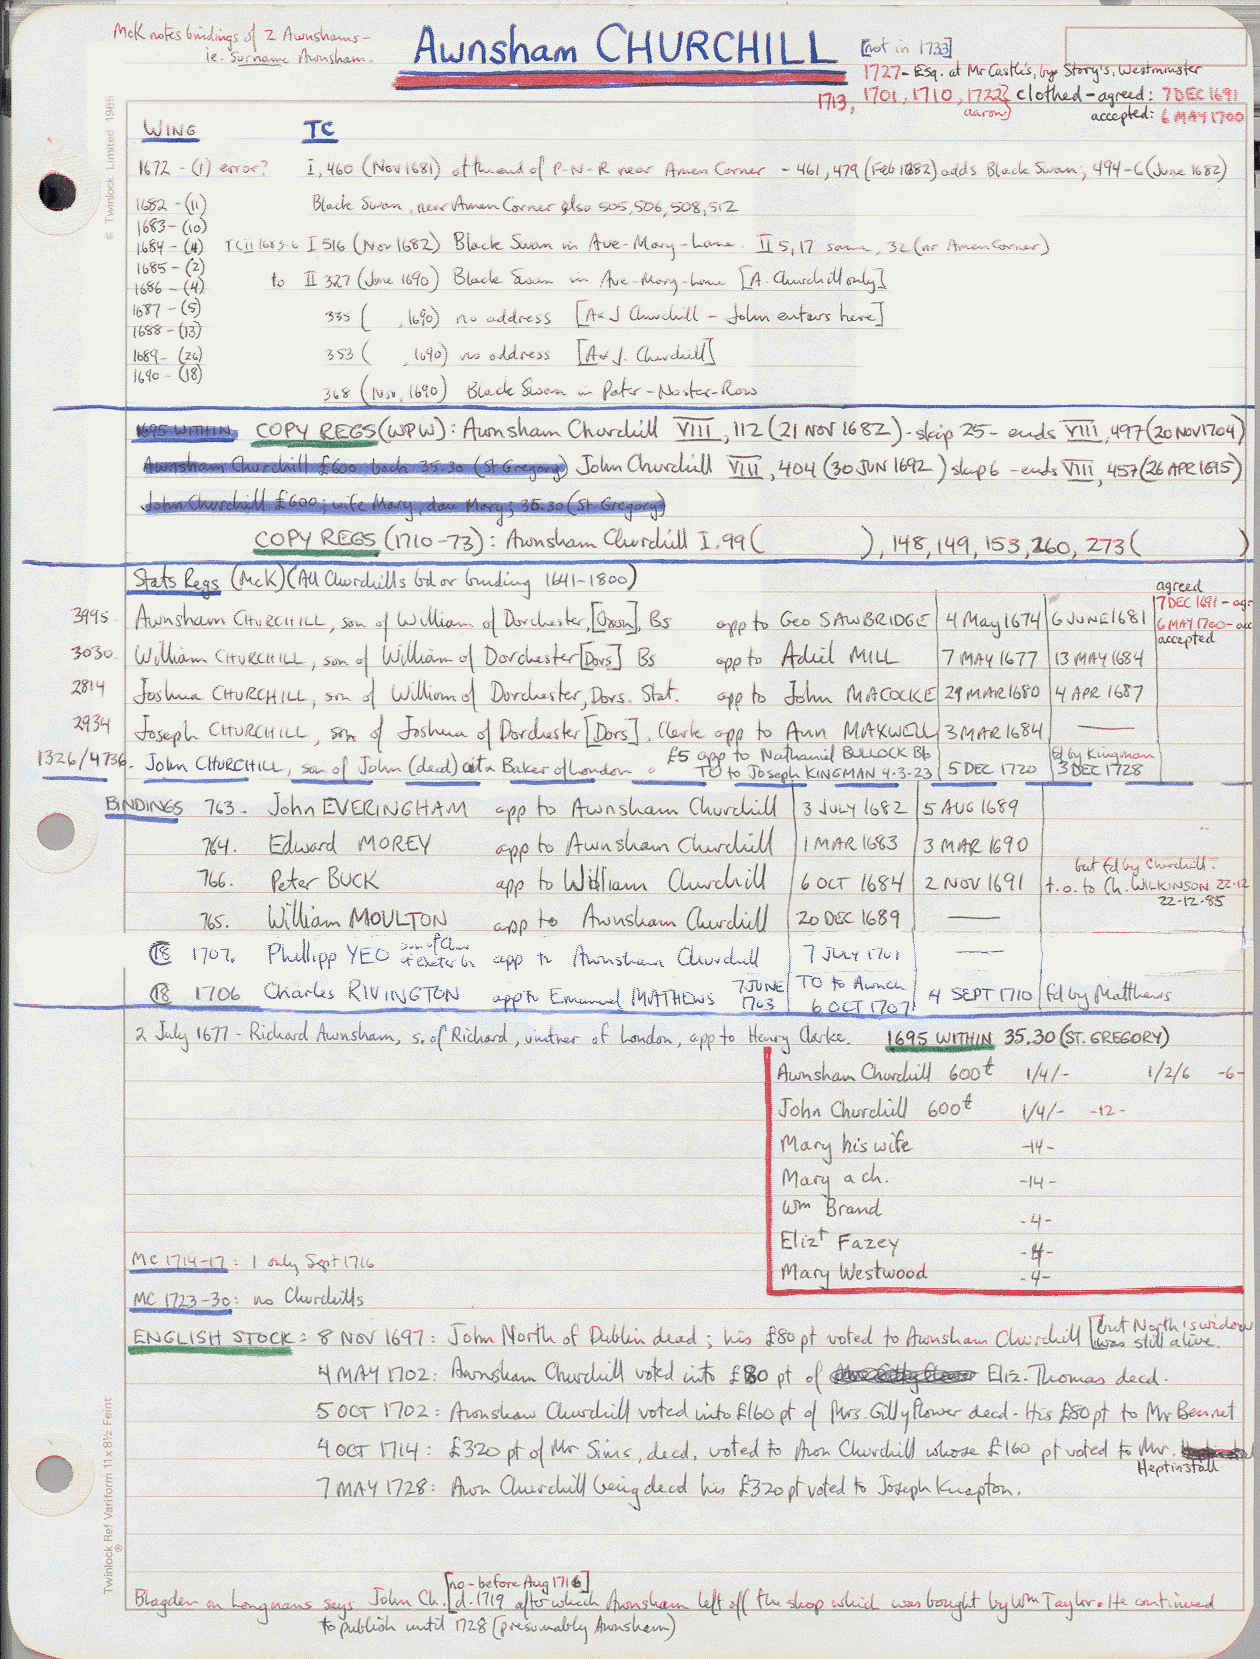 McK notes bindings of 2 Awnshams -
ie. surname Awnsham.
Awnsham CHURCHILL
[not in 1733]
1727 - Esq. at Mr Castle's, by Story's, Westminster
1713, 1701, 1710, 1722] clothed - agreed: 7 DEC 1691
(Aaron)
accepted: 6 MAY 1700
WING TC
1672 - (1) error? I, 460 (Nov 1681) at the end of P-N-R near Amen Corner - 461, 479 (Feb 1682) adds Black Swan; 494-6 (June 1682)
1682 - (11) Black Swan, near Amen Corner also 505, 506, 508, 512
1683 - (10)
1684 - (4) TC II 1683-6 I 516 (Nov 1682) Black Swan in Ave-Mary-Lane. II 5, 17 same, 32 (nr Amen Corner)
1685 - (2)
1686 - (4) to II 327 (June 1690) Black Swan in Ave-Mary-Lane [A. Churchill only]
1687 - (5)
335 ( , 1690) no address [A & J Churchill - John enters here]
1688 - (13)
1689 - (26) 353 ( , 1690) no address [A & J. Churchill]
1690 - (18)
368 (Nov, 1690) Black Swan in Pater-Noster-Row
1695 WITHIN COPY REGS (WPW): Awnsham Churchill VIII, 112 (21 NOV 1682) - skip 25 - ends VIII, 497 (20 NOV 1704)
Awnsham Churchill £600 bach 35.30 (St Gregory) John Churchill VIII, 404 (30 JUN 1692) skip 6 - ends VIII, 457 (26 APR 1695)
John Churchill £600; wife Mary, dau Mary; 35.30 (St Gregory)
COPY REGS (1710-73): Awnsham Churchill I. 99 ( ), 148, 149, 153, 260, 273 ( )
Stats Regs (McK) (All Churchills bd or binding 1641-1800)
agreed
7 DEC 1691 - agr
3995. Awnsham CHURCHILL, son of William of Dorchester, [Oxon], Bs app to Geo SAWBRIDGE 4 May 1674 6 JUNE 1681 6 MAY 1700 - acc
accepted
3030. William CHURCHILL, son of William of Dorchester [Dors] Bs app to Adiel MILL 7 MAY 1677 13 MAY 1684
2814 Joshua CHURCHILL, son of William of Dorchester, Dors. Stat. app to John MACOCKE 29 MAR 1680 4 APR 1687
2934 Joseph CHURCHILL, son of Joshua of Dorchester [Dors], Clerk app to Ann MAXWELL 3 MAR 1684 ——
£5 app to Nathaniel BULLOCK Bb fd by Kingman
1326/4736. John CHURCHILL, son of John (dead) cit & Baker of London TO to Joseph KINGMAN 4-3-23 5 DEC 1720 3 DEC 1728
BINDINGS 763. John EVERINGHAM app to Awnsham Churchill 3 JULY 1682 5 AUG 1689
764. Edward MOREY app to Awnsham Churchill 1 MAR 1683 3 MAR 1690
but fd by Churchill.
766. Peter BUCK app to William Churchill 6 OCT 1684 2 NOV 1691 t.o. to Ch. WILKINSON 22-12
22-12-85
765. William MOULTON app to Awnsham Churchill 20 DEC 1689 ——
C18 1707. Phillipp YEO son of Chas of Exeter app to Awnsham Churchill 7 JULY 1701 ——
C18 1706 Charles RIVINGTON app to Emanuel MATHEWS 7 JUNE 1703 TO to Awnch 6 OCT 1707 4 SEPT 1710 fd by Matthews
2 July 1677 - Richard Awnsham, s. of Richard, vintner of London, app to Henry Clarke. 1695 WITHIN 35.30 (ST. GREGORY)
Awnsham Churchill 600£ 1/4/- 1/2/6 -6-
John Churchill 600£ 1/4/- -12-
Mary his wife -14-
Mary a ch. -14-
Wm Brand -4-
Elizt Fazey -4-
Mary Westwood -4-
MC 1714-17: 1 only Sept 1716
MC 1723-30: no Churchills
ENGLISH STOCK: 8 NOV 1697: John North of Dublin dead; his £80 pt voted to Awnsham Churchill [but North's widow was still alive.
4 MAY 1702: Awnsham Churchill voted into £80 pt of Eliz. Thomas decd.
5 OCT 1702: Awnsham Churchill voted into £160 pt of Mrs. Gillyflower decd. His £80 pt to Mr Bennet
4 OCT 1714: £320 pt of Mr Sims, decd, voted to Awn Churchill whose £160 pt voted to Mr.
Heptinstall
7 MAY 1728: Awn Churchill being decd his £320 pt voted to Joseph Knapton.
[no - before Aug 1716]
Blagden on Longmans says John Ch. [d. 1719 after which Awnsham left off the shop which was bought by Wm Taylor. He continued
to publish until 1728 (presumably Awnsham)
® Twinlock Limited 1969
Twinlock Ref Variform 11 x 8½ Feint